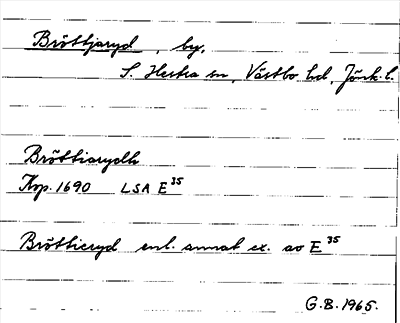 Bröttjaryd, by,
S. Hestra sn, Västbo hd, Jönk. l.
Bröttiarydh
Kop. 1690 LSA E 35
Brötticryd enl. annat ex. av E 35
G.B. 1965.